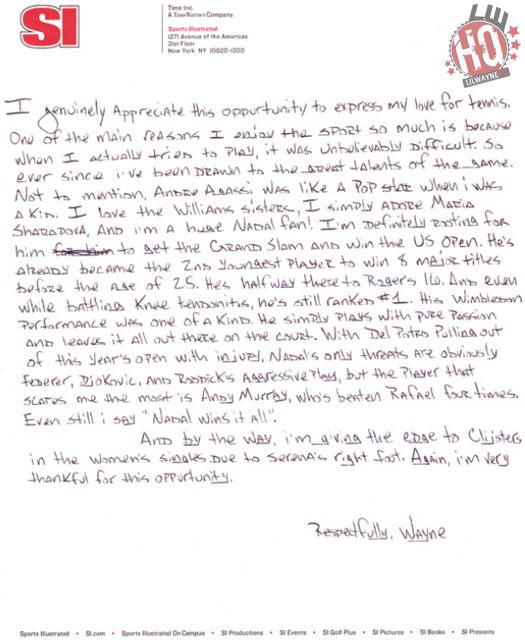 SI
Time Inc.
A TimeWarner Company
Sports Illustrated
1271 Avenue of the Americas
31st Floor
New York NY 10020-1300
LILWAYNE
HQ
I genuinely appreciate this oppurtunity to express my love for tennis.
One of the main reasons I enjoy the sport so much is because
when I actually tried to play, it was unbelievably difficult. So
ever since i've been drawn to the great talents of the game.
Not to mention, Andre Agassi was like a pop star when i was
a kid. I love the Williams sisters, I simply adore Maria
Sharapova, and i'm a huge Nadal fan! I'm definitely rooting for
him for him to get the Grand Slam and win the US Open. He's
already became the 2nd youngest player to win 8 major titles
before the age of 25. He's halfway there to Roger's 16. And even
while battling knee tendonitis, he's still ranked #1. His Wimbledon
performance was one of a kind. He simply plays with pure passion
and leaves it all out there on the court. With Del Potro pulling out
of this year's open with injury, Nadal's only threats are obviously
Federer, Djokovic, and Roddick's aggressive play, but the player that
scares me the most is Andy Murray, who's beaten Rafael four times.
Even still i say "Nadal wins it all".
And by the way, i'm giving the edge to Clijsters
in the women's singles due to Serena's right foot. Again, i'm very
thankful for this opportunity.
Respectfully, Wayne
Sports Illustrated • SI.com • Sports Illustrated On Campus • SI Productions • SI Events • SI Golf Plus • SI Pictures • SI Books • SI Presents